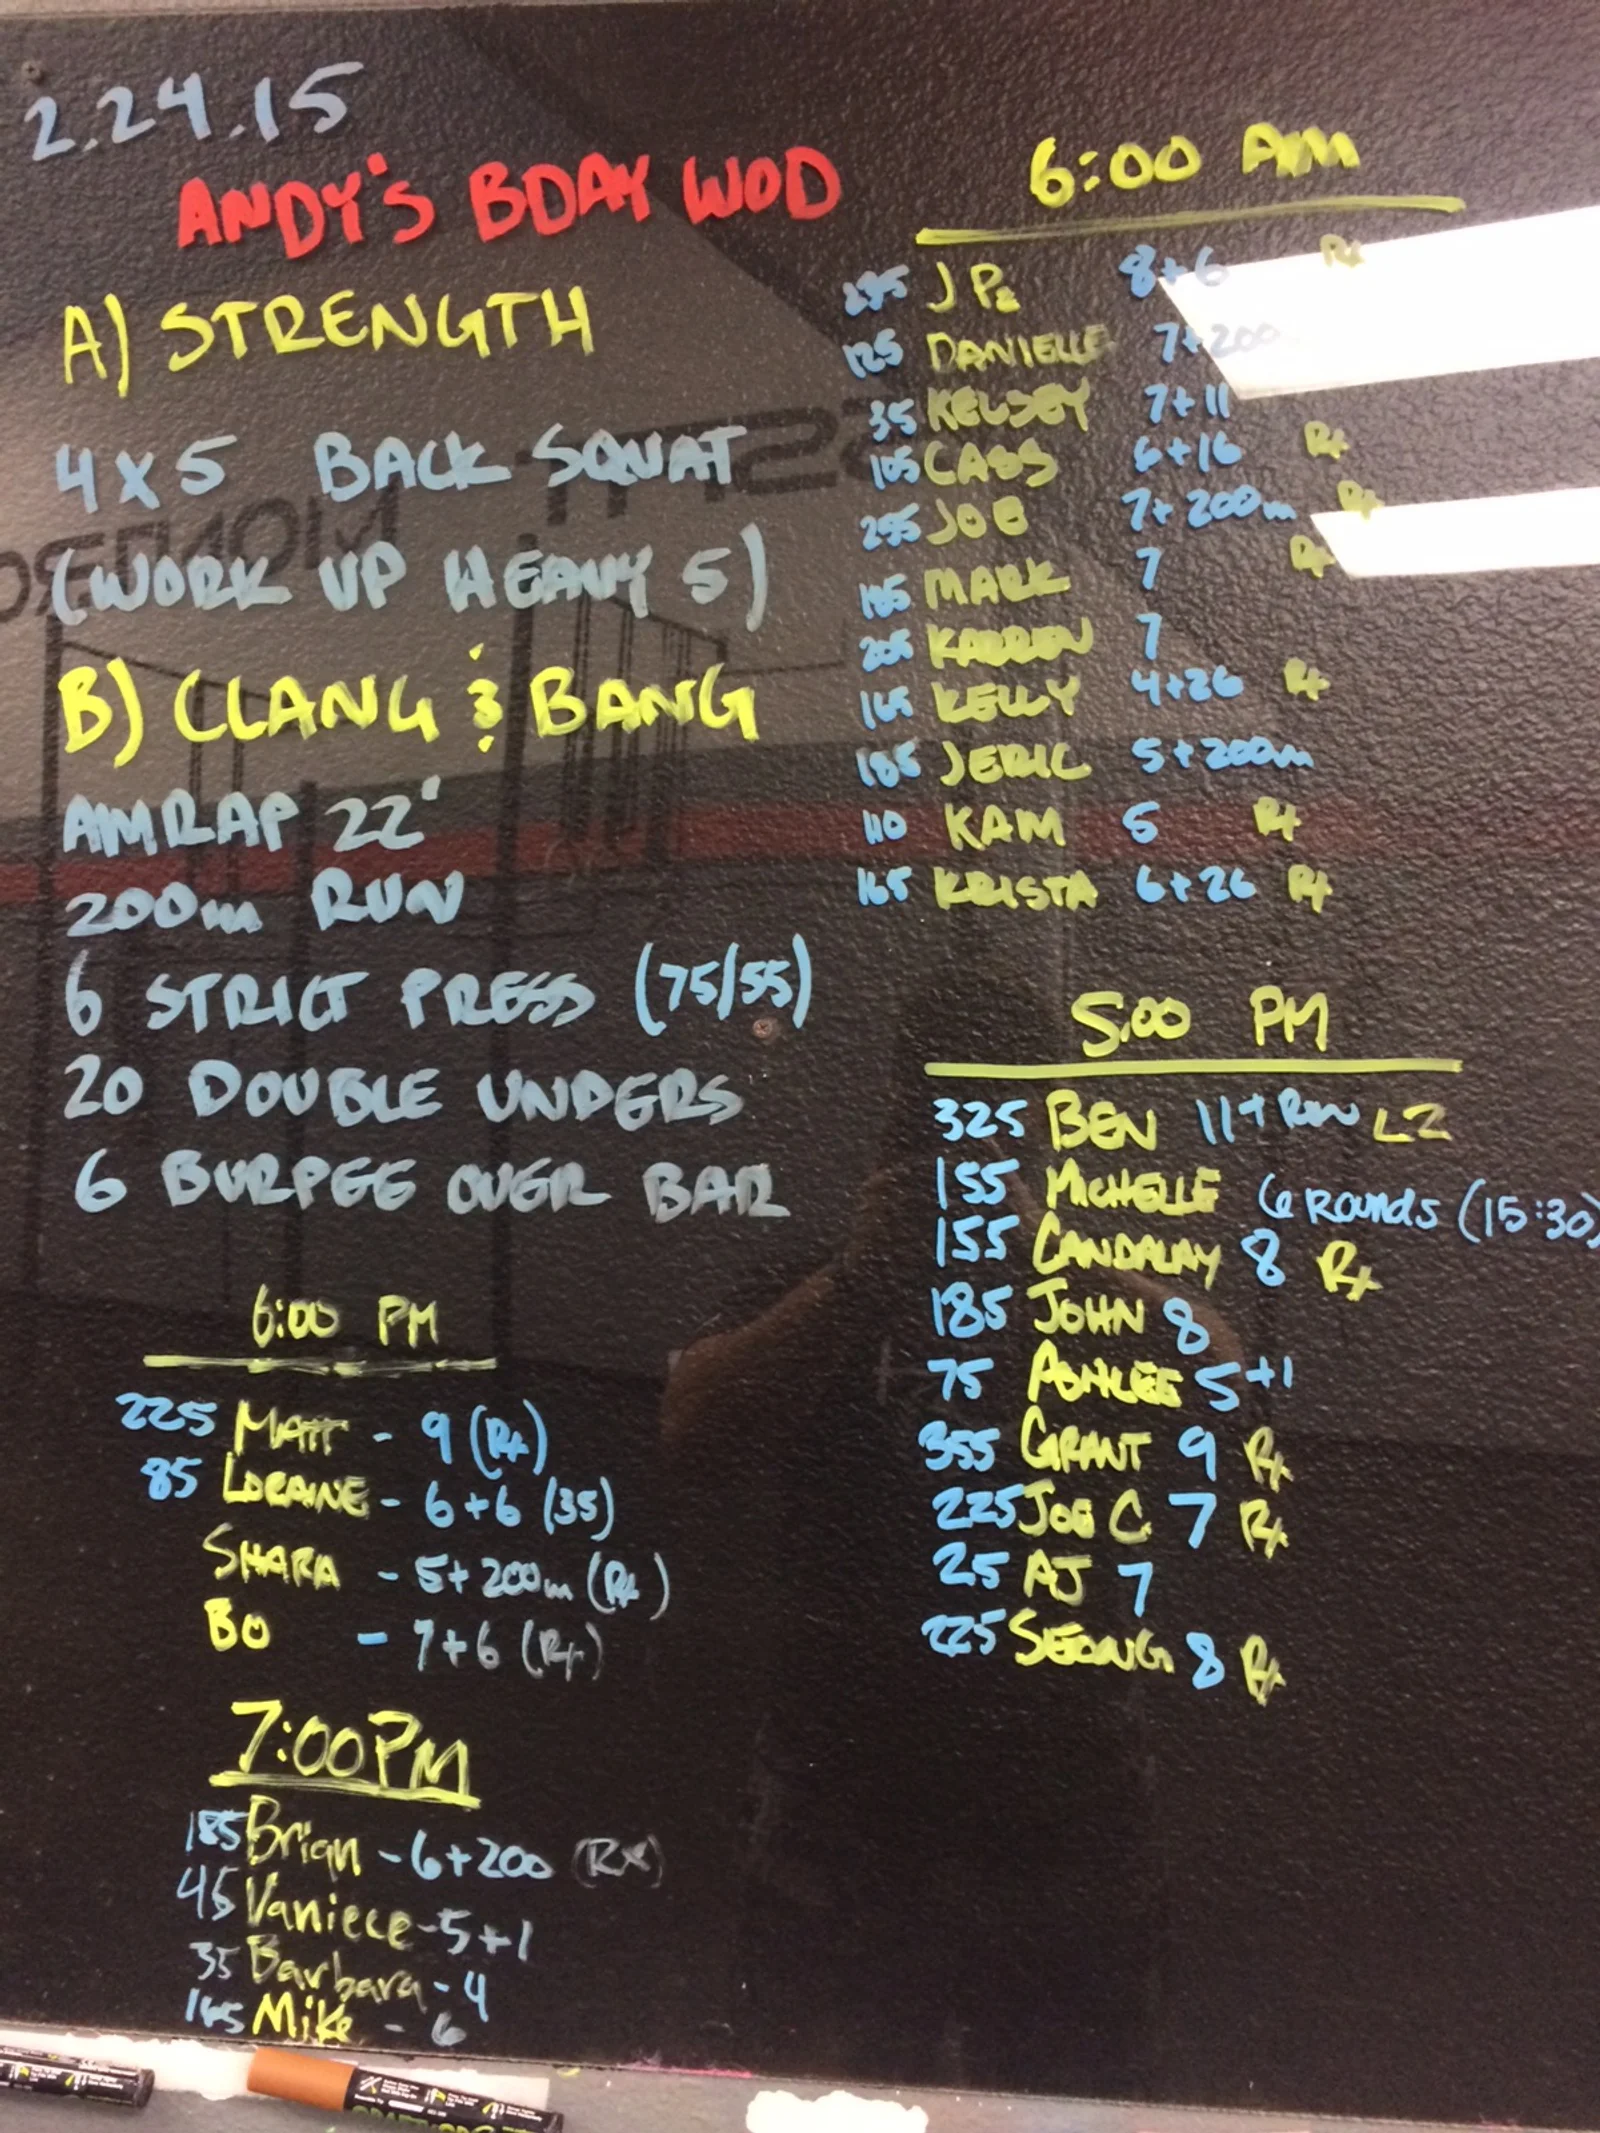 2.24.15
ANDY'S BDAY WOD
A) STRENGTH
4 x 5 BACK SQUAT
(WORK UP HEAVY 5)
B) CLANG & BANG
AMRAP 22'
200m RUN
6 STRICT PRESS (75/55)
20 DOUBLE UNDERS
6 BURPEE OVER BAR
6:00 PM
225 MATT - 9 (Rx)
85 LORAINE - 6+6 (35)
SHARA - 5+200m (Rx)
BO - 7+6 (Rx)
7:00 PM
185 Brian - 6+200 (Rx)
45 Vaniece - 5+1
35 Barbara - 4
165 Mike - 6
6:00 AM
JP 8+6 Rx
125 DANIELLE 7+200
35 KELSEY 7+11
105 CASS 6+16 Rx
255 JOE 7+200m Rx
185 MARK 7 Rx
205 7
165 KELLY 4+26 Rx
185 JERIC 5+200m
110 KAM 5 Rx
165 KRISTA 6+26 Rx
5:00 PM
325 BEN 11+Run L2
155 MICHELLE 6 ROUNDS (15:30)
155 CANDALAY 8 Rx
185 JOHN 8
75 ASHLEE 5+1
355 GRANT 9 Rx
225 JOE C 7 Rx
25 AJ 7
225 SEONG 8 Rx